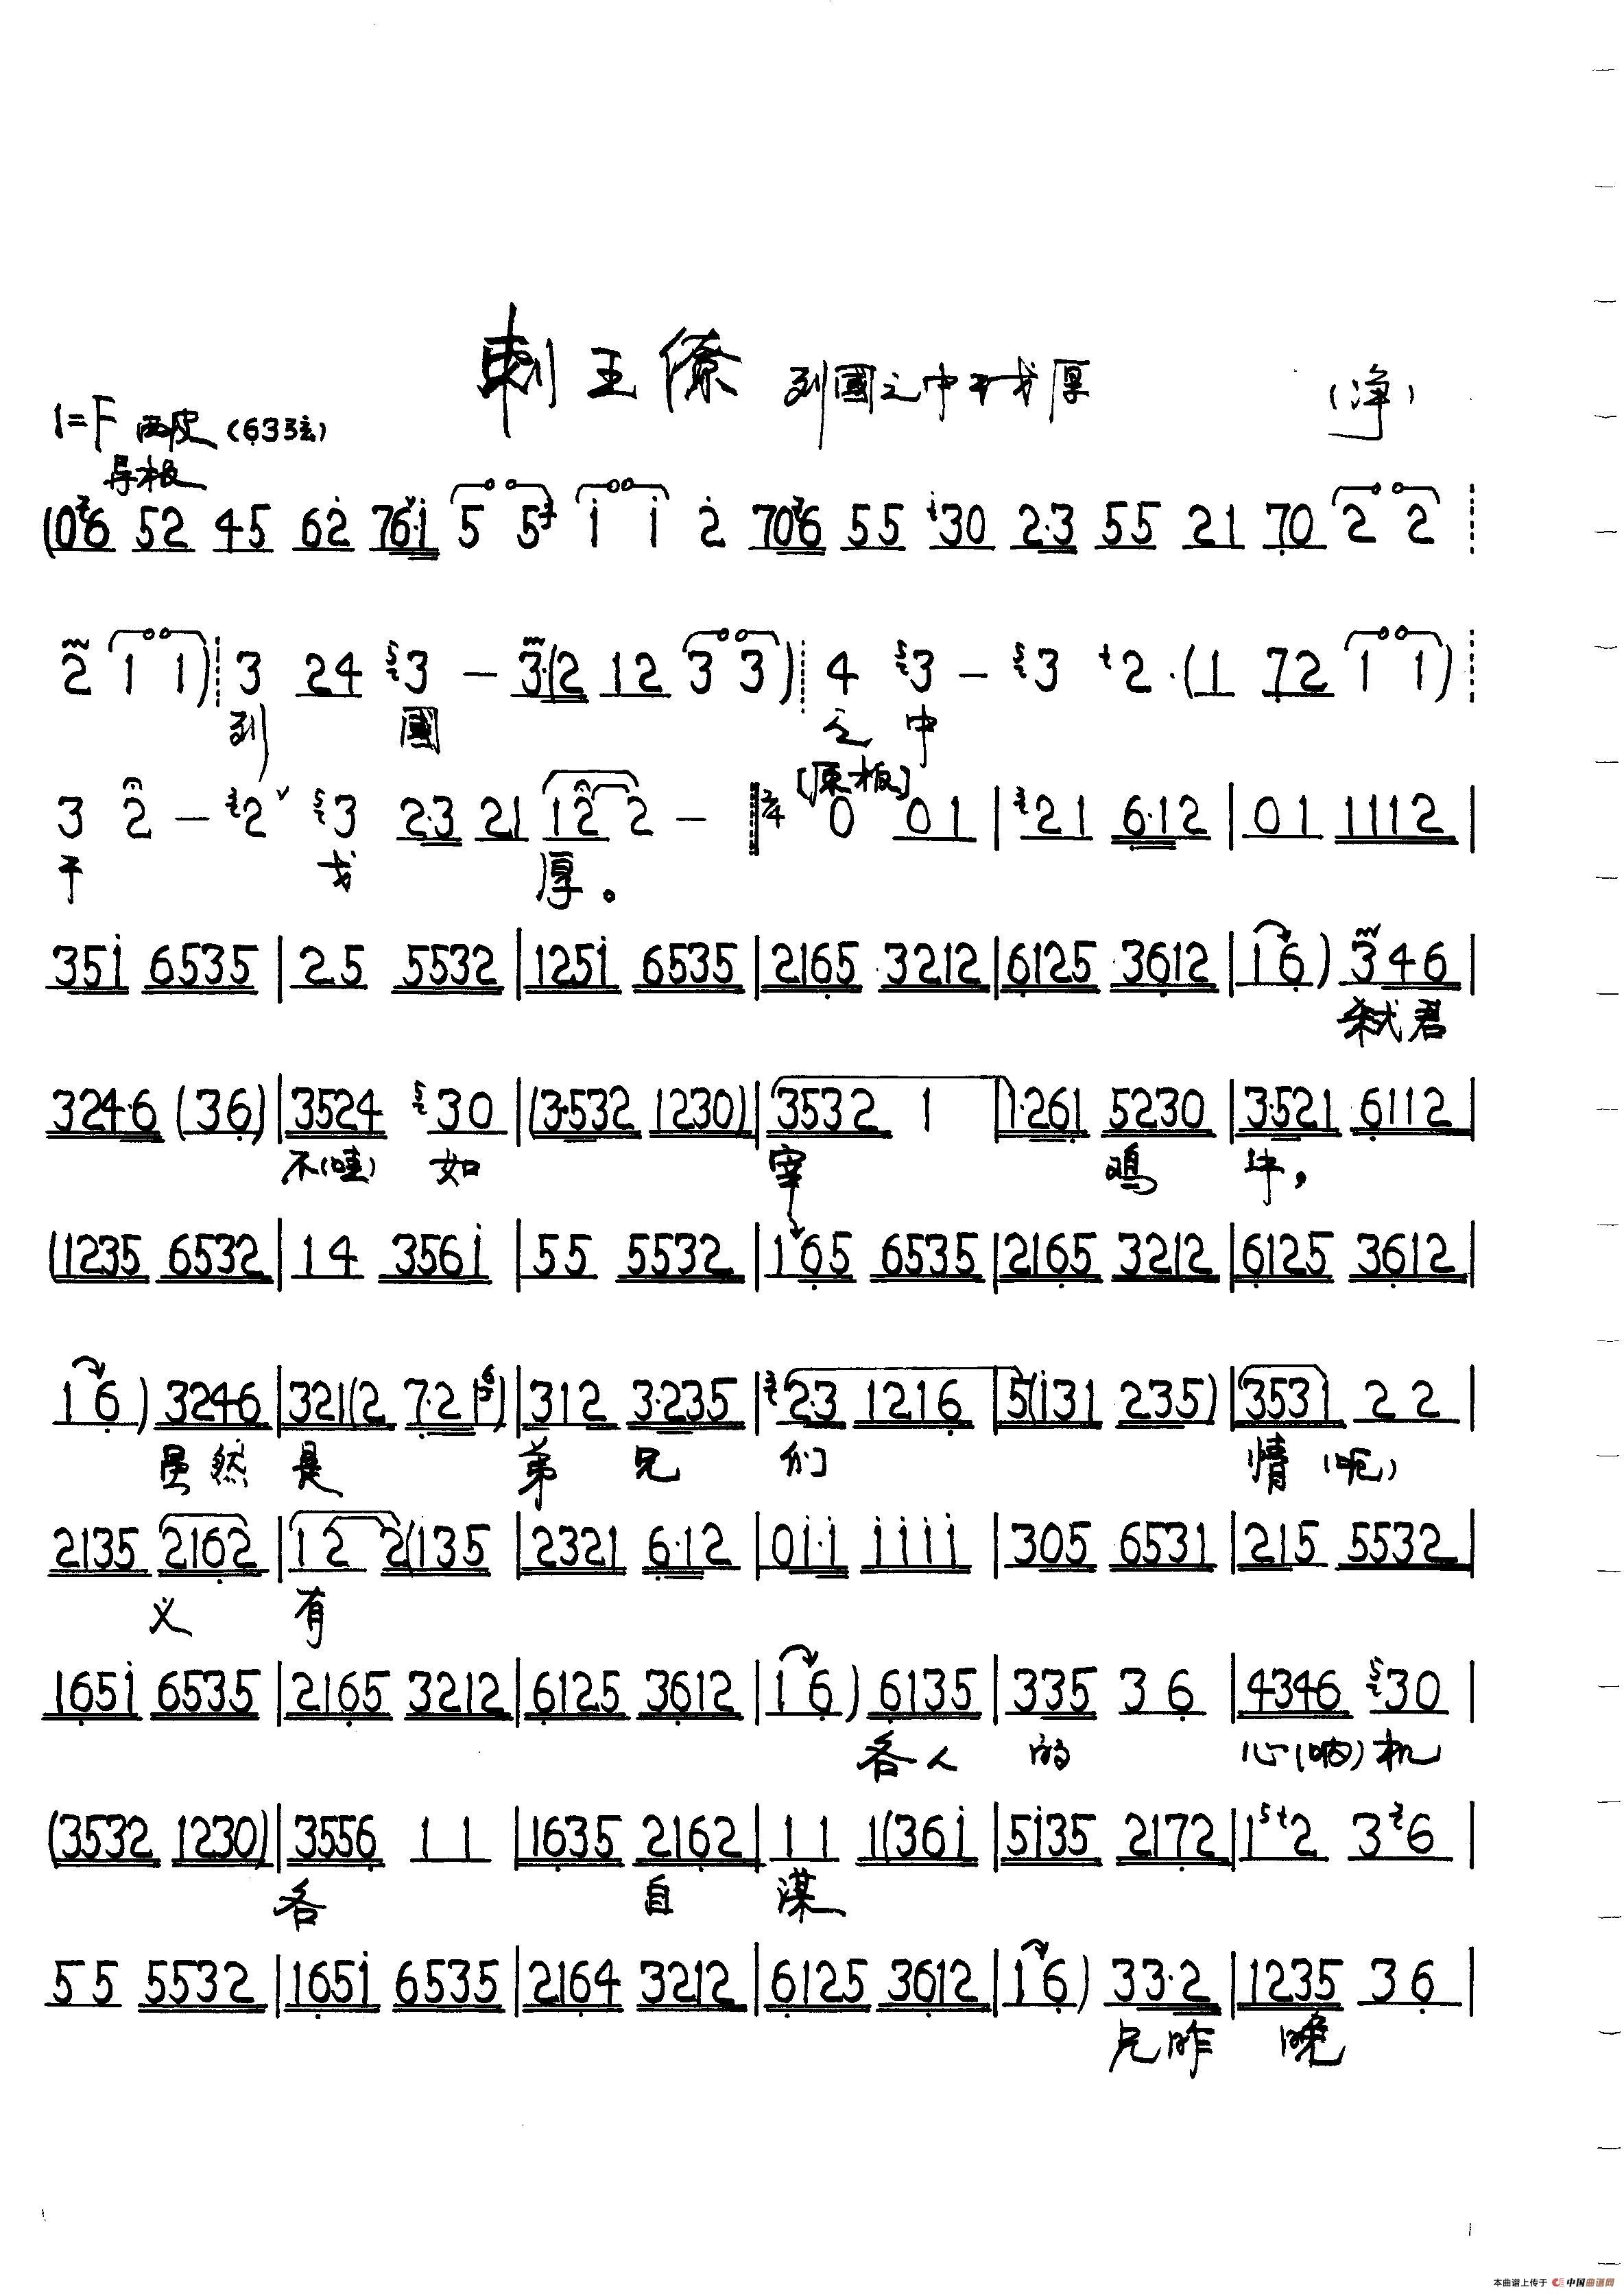 刺王僚 列國之中干戈厚 (净)
1=F 西皮 (63弦)
导板
(06 52 45 62 76·1 5 5 1 1 2 706 55 30 2·3 55 21 70 2 2
2 1 1) 3 24 3 — 3·(2 12 3 3) 4 3 — 3 2·(1 72 1 1)
列 國 之 中
[原板]
3 2 — 2 3 2·3 21 12 2 — 2/4 0 01 | 21 6·12 | 01 1112 |
干 戈 厚。
351 6535 | 2 5 5532 | 1251 6535 | 2165 3212 | 6125 3612 | 1 6) 346 |
弑君
324·6 (36) | 3524 30 | (3·532 1230) | 3532 1 | 1·261 5230 | 3·521 6112 |
不(哇) 如 宰 鸡 牛,
(1235 6532 | 14 3561 | 55 5532 | 165 6535 | 2165 3212 | 6125 3612 |
1 6) 3246 | 321(2 7·21) | 312 3·235 | 2·3 1216 | 5(131 235) | 3531 2 2 |
虽然 是 弟 兄 们 情 (呃)
2135 2162 | 12 2(135 | 2321 6·12 | 01·1 1111 | 305 6531 | 215 5532 |
义 有
1651 6535 | 2165 3212 | 6125 3612 | 1 6) 6135 | 335 3 6 | 4346 30 |
各人 的 心(呐)机
(3532 1230) | 3556 1 1 | 1635 2162 | 1 1 1(361 | 5135 2172 | 1 2 3 6 |
各 自 谋
55 5532 | 1651 6535 | 2164 3212 | 6125 3612 | 1 6) 33·2 | 1235 3 6 |
兄昨 晚
本曲谱上传于 中国曲谱网